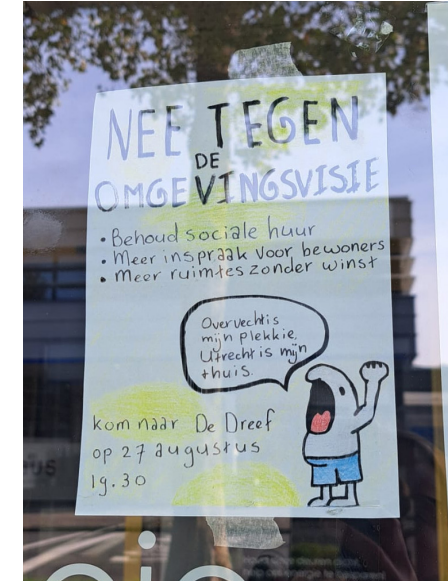 NEE TEGEN
DE
OMGEVINGSVISIE
• Behoud sociale huur
• Meer inspraak voor bewoners
• Meer ruimtes zonder winst
Overvecht is
mijn plekkie,
Utrecht is mijn
thuis.
kom naar De Dreef
op 27 augustus
19.30